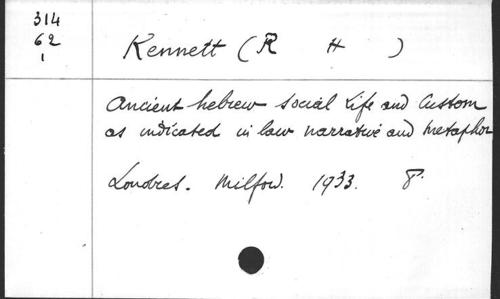 314
62
1
Kennett (R H )
Ancient hebrew social life and Custom
as indicated in law narrative and metaphor
Londres. Milford. 1933. 8°.